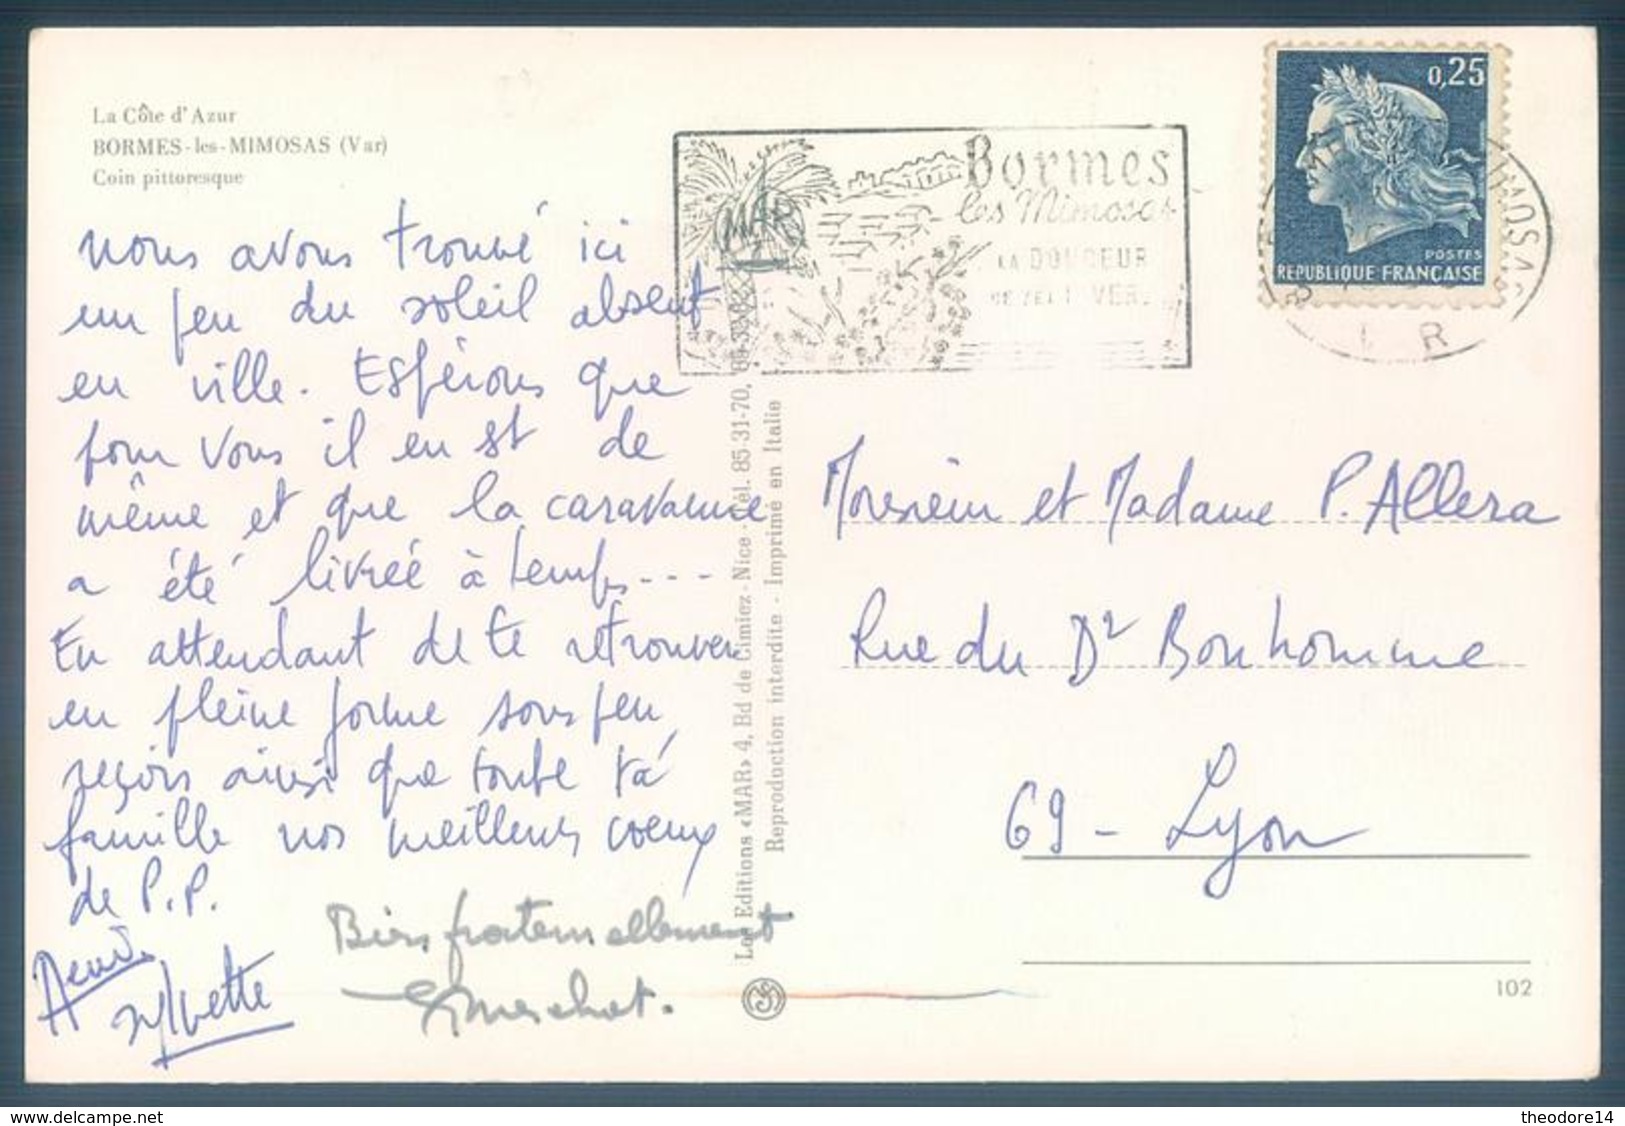 La Côte d'Azur
BORMES-les-MIMOSAS (Var)
Coin pittoresque
nous avons trouvé ici
un peu du soleil absent
en ville. Espérons que
pour vous il en st de
même et que la caravanne
a été livrée à temps---
En attendant de te retrouver
en pleine forme sous peu,
reçois ainsi que toute ta
famille nos meilleurs voeux
de P.P.
Henri
Sylvette
Bien fraternellement
Les Editions «MAR» 4, Bd de Cimiez - Nice - Tél. 85-31-70,
Reproduction interdite - Imprimé en Italie
MAR
Bormes
les Mimosas
LA DOUCEUR
0,25
POSTES
REPUBLIQUE FRANÇAISE
Monsieur et Madame P. Allera
Rue du Dr Bonhomme
69 - Lyon
102
delcampe.net
theodore14